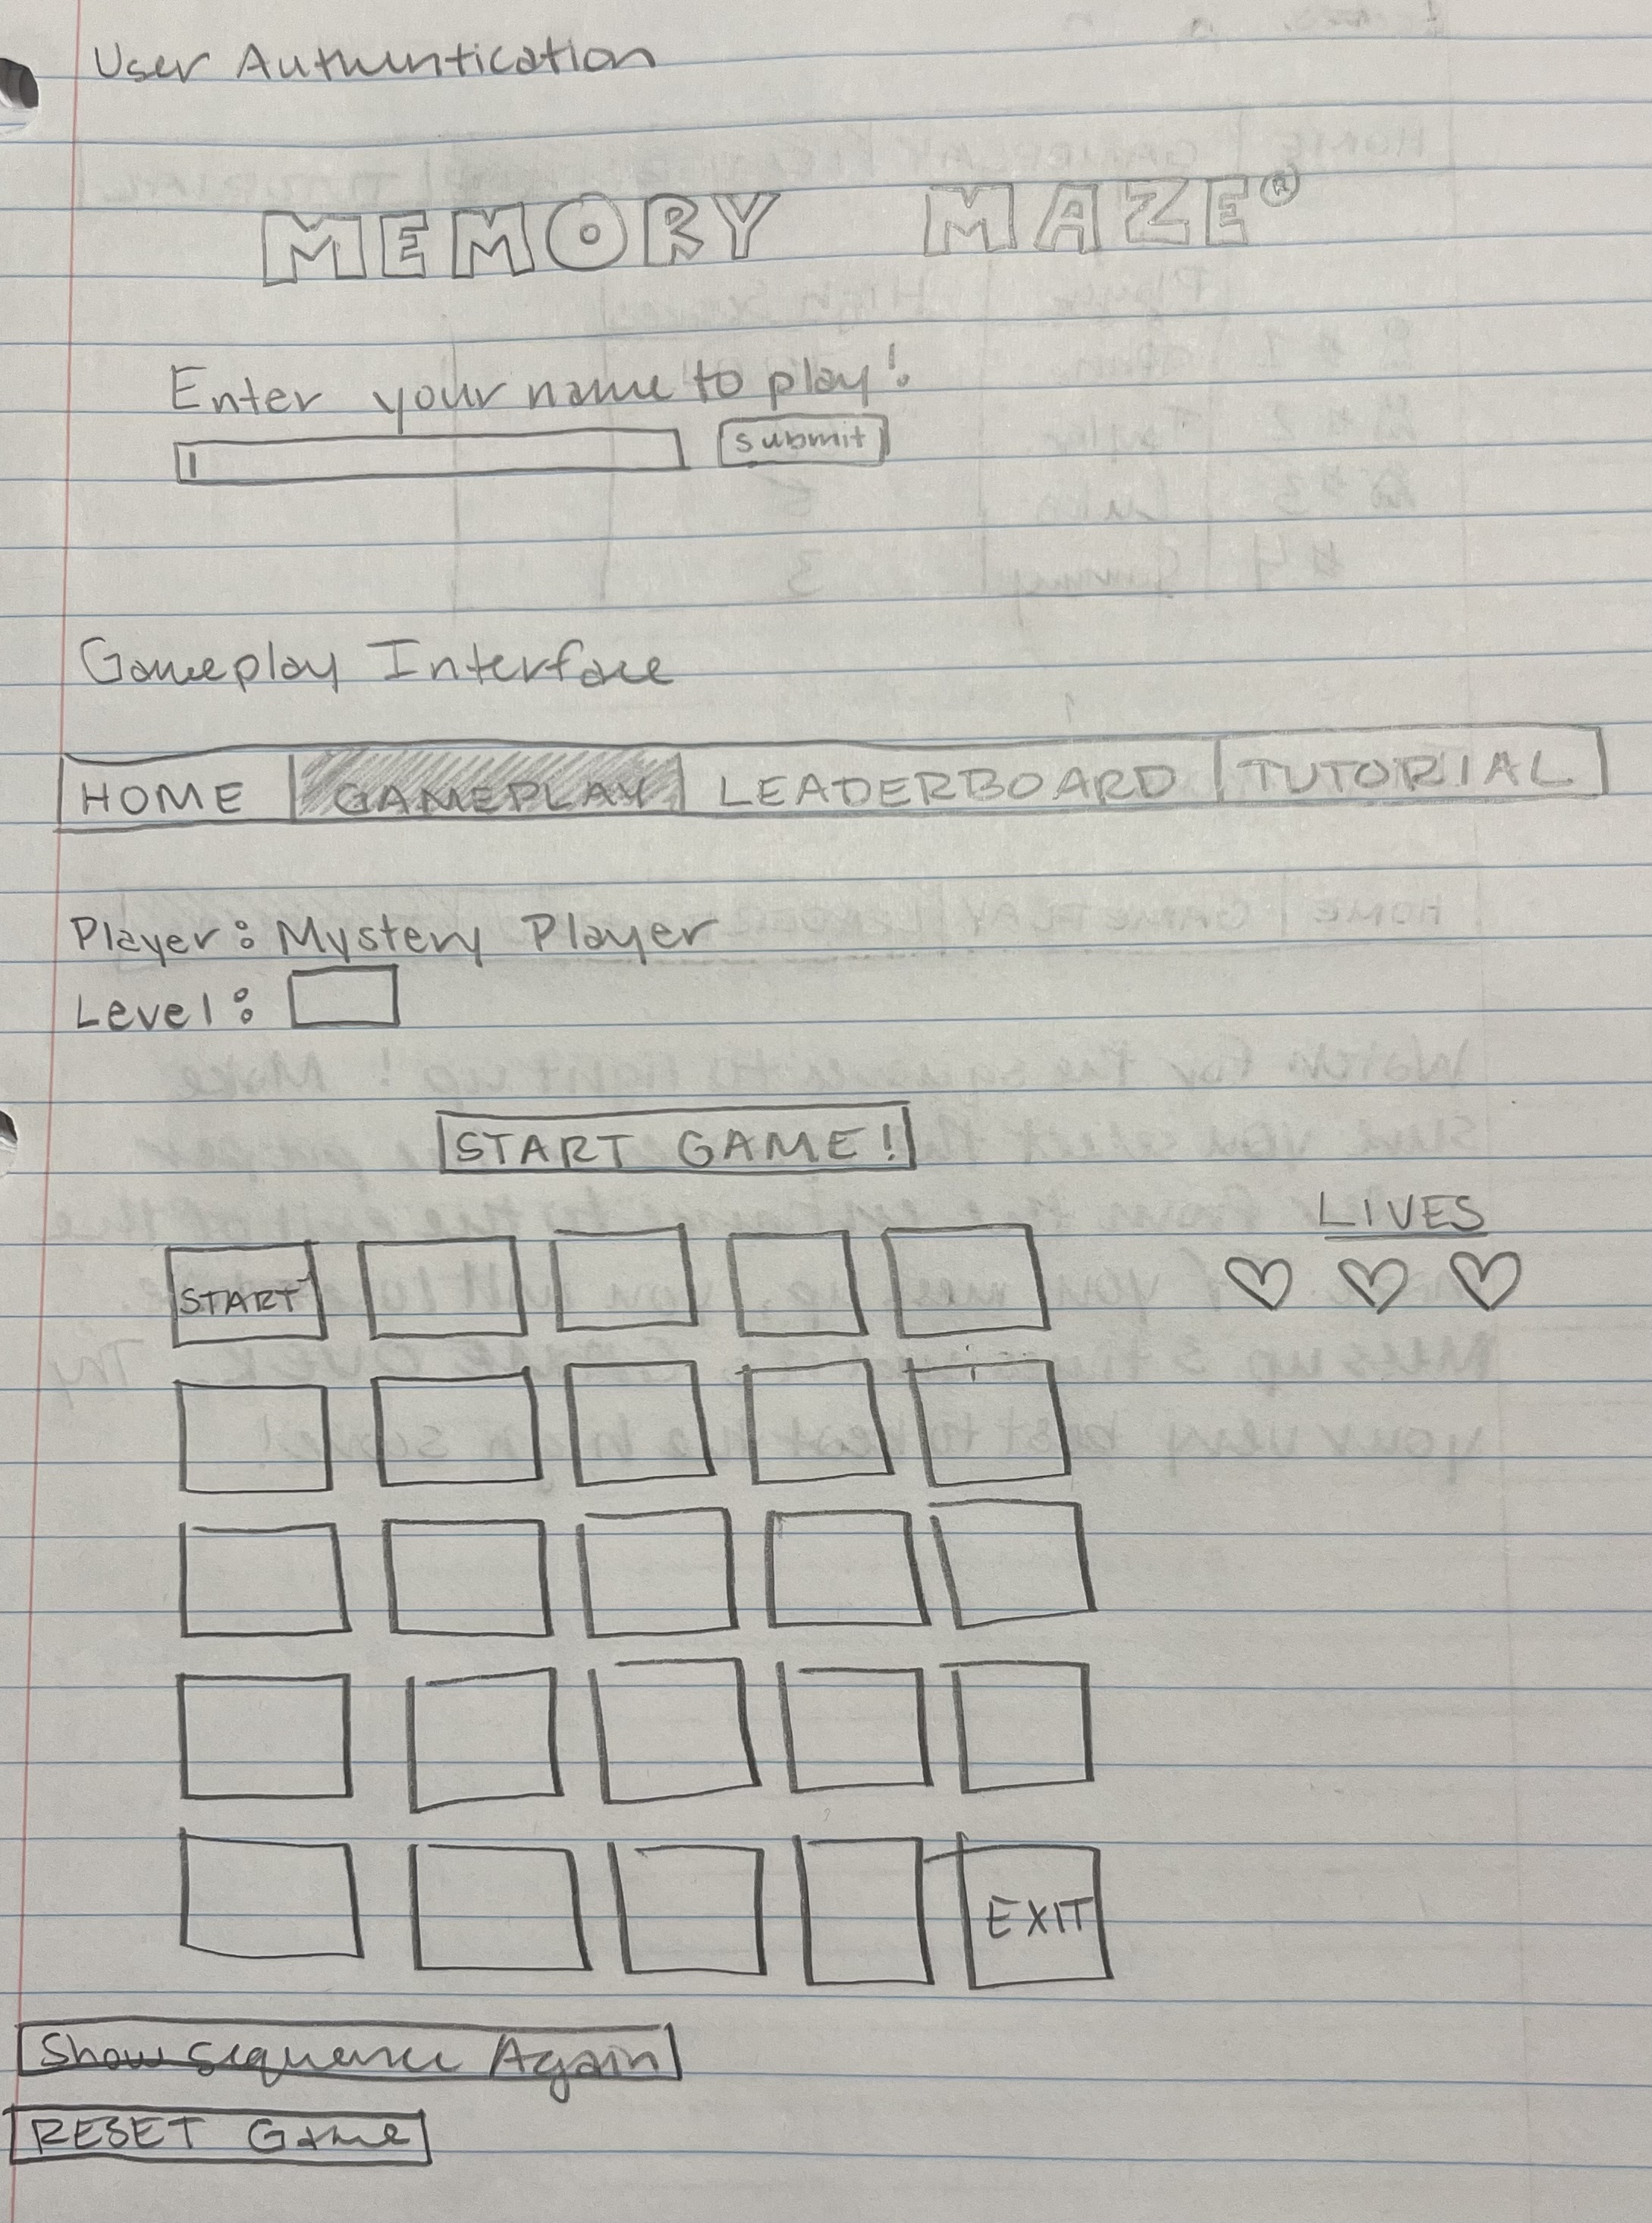 User Authentication
MEMORY MAZE®
Enter your name to play!
submit
Gameplay Interface
HOME GAMEPLAY LEADERBOARD TUTORIAL
Player: Mystery Player
Level:
START GAME!
LIVES
START
EXIT
Show sequence Again
RESET Game